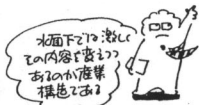 水面下では激しく
その内容を変えつつ
あるのが産業
構造である